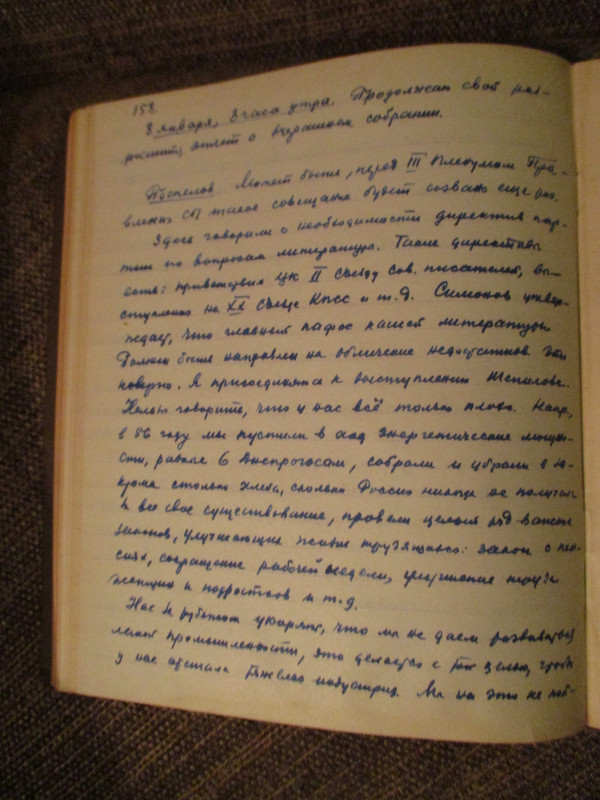 158
8 января, 8 часов утра. Продолжаю свой рас-
ширит. отчет о вчерашнем собрании.
Поспелов Может быть, перед III Пленумом Пра-
вления СП такое совещание будет созвано еще раз.
Здесь говорили о необходимости директив пар-
тии по вопросам литературы. Такие директивы
есть: приветствия ЦК II съезду сов. писателей, вы-
ступления на XX съезде КПСС и т.д. Симонов утвер-
ждает, что главный пафос нашей литературы
должен быть направлен на обличение недостатков. Это
неверно. Я присоединяюсь к выступлению Шепилова.
Нельзя говорить, что у нас всё только плохо. Напр.,
в 56 году мы пустили в ход энергетические мощно-
сти, равные 6 Днепрогэсам, собрали и убрали в за-
крома столько хлеба, сколько Россия никогда не получала
за все свое существование, провели целый ряд важн.
законов, улучшающих жизнь трудящихся: закон о пен-
сиях, сокращение рабочей недели, улучшение труда
женщин и подростков и т.д.
Нас за рубежом укоряют, что мы не даем развиваться
легкой промышленности, это делается с тем целью, чтобы
у нас отстала тяжелая индустрия. Мы на это не пой-